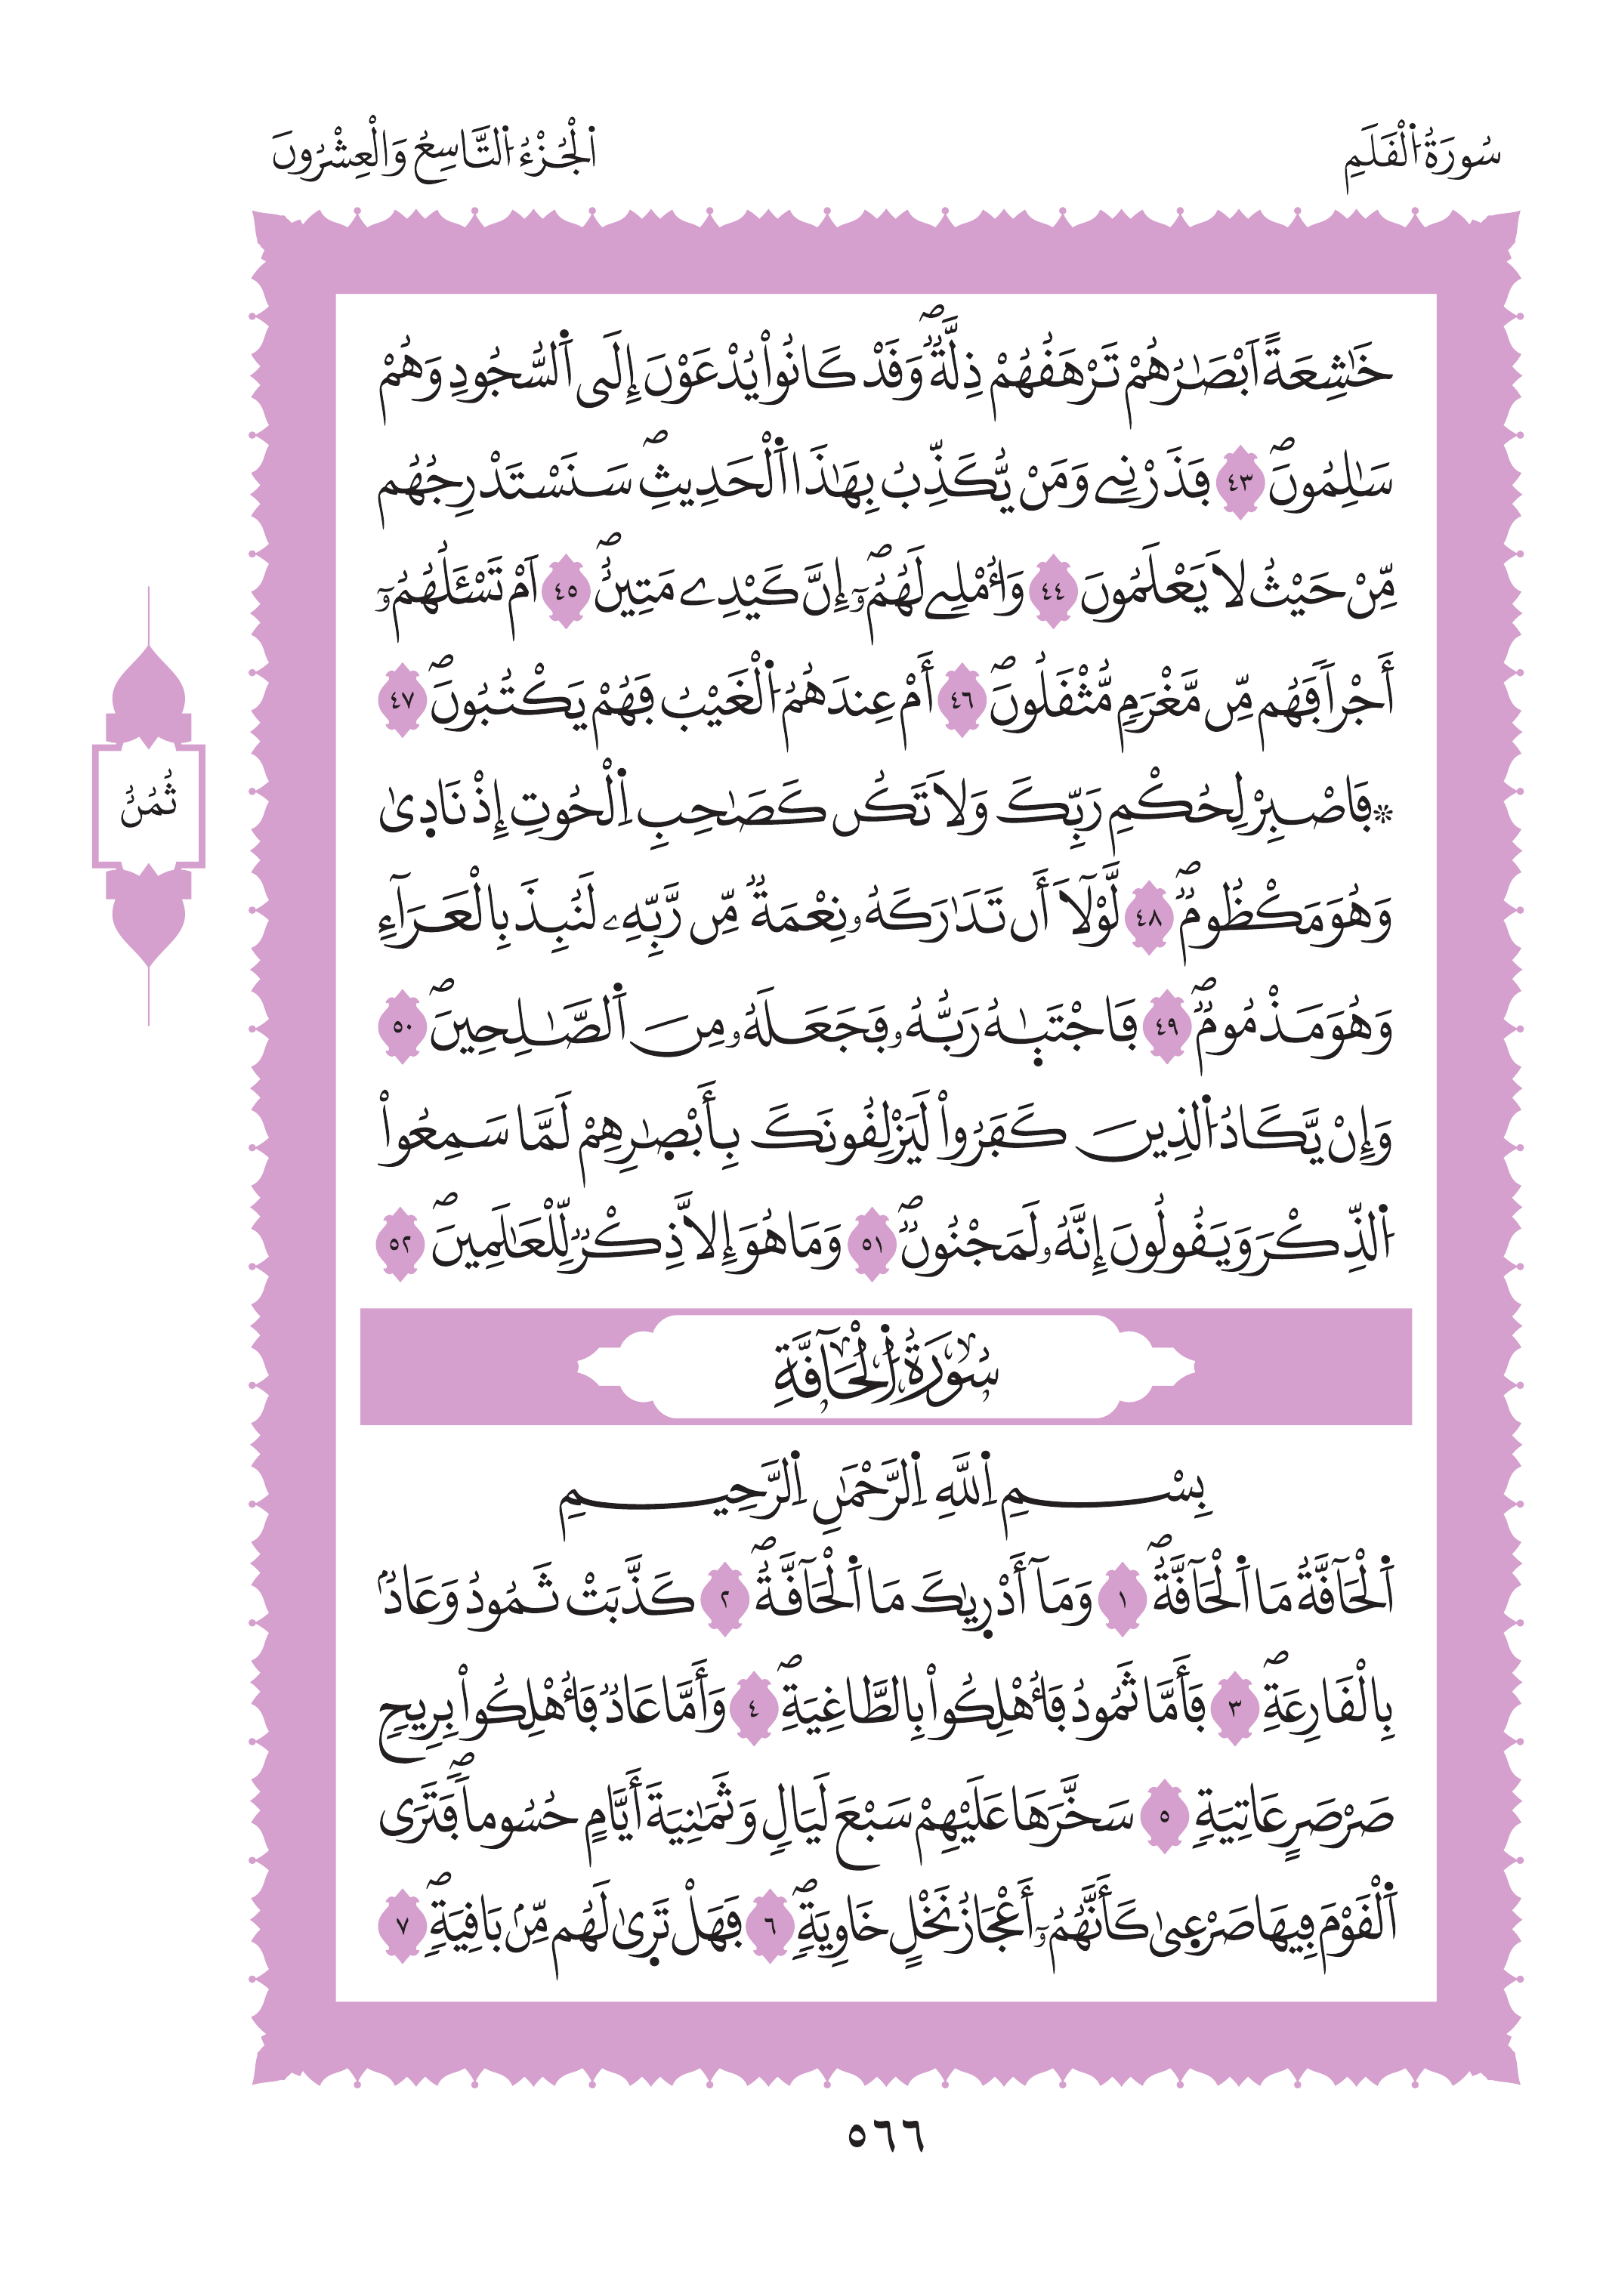 سُورَةُ اُ۬لْقَلَمِ
اَ۬لْجُزْءُ اُ۬لتَّاسِعُ وَالْعِشْرُونَ
خَٰشِعَةً اَبْصَٰرُهُمْ تَرْهَقُهُمْ ذِلَّةٞۖ وَقَدْ كَانُواْ يُدْعَوْنَ إِلَى اَ۬لسُّجُودِ وَهُمْ
سَٰلِمُونَۖ ٤٣ فَذَرْنِے وَمَنْ يُّكَذِّبُ بِهَٰذَا اَ۬لْحَدِيثِۖ سَنَسْتَدْرِجُهُم
مِّنْ حَيْثُ لاَ يَعْلَمُونَ ٤٤ وَأُمْلِے لَهُمُۥٓۖ إِنَّ كَيْدِے مَتِينٌۖ ٤٥ اَمْ تَسْـَٔلُهُمُۥٓ
أَجْراٗ فَهُم مِّن مَّغْرَمٖ مُّثْقَلُونَۖ ٤٦ أَمْ عِندَهُمُ اُ۬لْغَيْبُ فَهُمْ يَكْتُبُونَۖ ٤٧
۞فَاصْبِرْ لِحُكْمِ رَبِّكَ وَلاَ تَكُن كَصَٰحِبِ اِ۬لْحُوتِ إِذْ نَادٜىٰ
وَهُوَ مَكْظُومٞۖ ٤٨ لَّوْلَآ أَن تَدَٰرَكَهُۥ نِعْمَةٞ مِّن رَّبِّهِۦ لَنُبِذَ بِالْعَرَآءِ
وَهُوَ مَذْمُومٞۖ ٤٩ فَاجْتَبٜىٰهُ رَبُّهُۥ فَجَعَلَهُۥ مِنَ اَ۬لصَّٰلِحِينَۖ ٥٠
وَإِنْ يَّكَادُ اُ۬لذِينَ كَفَرُواْ لَيَزْلِقُونَكَ بِأَبْصٰٜرِهِمْ لَمَّا سَمِعُواْ
اُ۬لذِّكْرَ وَيَقُولُونَ إِنَّهُۥ لَمَجْنُونٞۖ ٥١ وَمَا هُوَ إِلاَّ ذِكْرٞ لِّلْعَٰلَمِينَۖ ٥٢
سُورَةُ اُ۬لْحَآقَّةِ
بِسْمِ اِ۬للَّهِ اِ۬لرَّحْمَٰنِ اِ۬لرَّحِيمِ
اَ۬لْحَآقَّةُ مَا اَ۬لْحَآقَّةُۖ ١ وَمَآ أَدْرٜىٰكَ مَا اَ۬لْحَآقَّةُۖ ٢ كَذَّبَتْ ثَمُودُ وَعَادُۢ
بِالْقَارِعَةِۖ ٣ فَأَمَّا ثَمُودُ فَأُهْلِكُواْ بِالطَّاغِيَةِۖ ٤ وَأَمَّا عَادٞ فَأُهْلِكُواْ بِرِيحٖ
صَرْصَرٍ عَاتِيَةٖ ٥ سَخَّرَهَا عَلَيْهِمْ سَبْعَ لَيَالٖ وَثَمَٰنِيَةَ أَيَّامٍ حُسُوماٗۖ فَتَرَى
اَ۬لْقَوْمَ فِيهَا صَرْعٜىٰ كَأَنَّهُمُۥٓ أَعْجَازُ نَخْلٍ خَاوِيَةٖۖ ٦ فَهَلْ تَرٜىٰ لَهُم مِّنۢ بَاقِيَةٖۖ ٧
ثُمُنٌ
٥٦٦